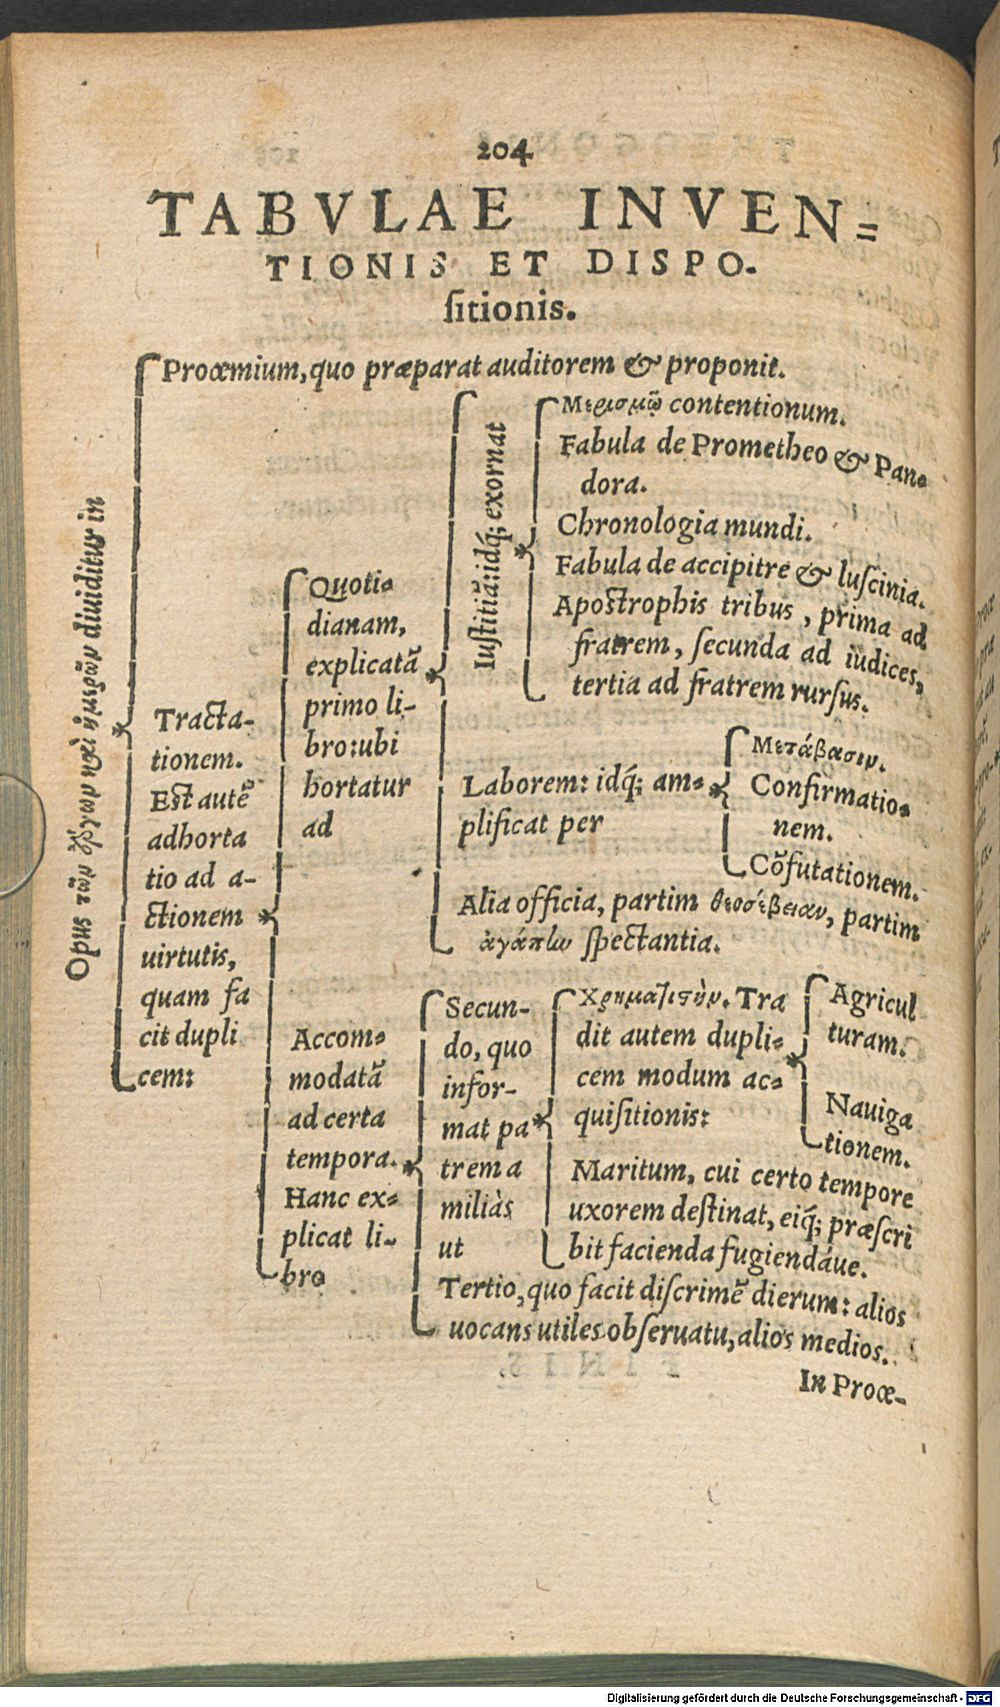 204
TABVLAE INVEN=
TIONIS ET DISPO.
ſitionis.
Opus τῶν ἔργων καὶ ἡμερῶν diuiditur in
Proœmium, quo præparat auditorem & proponit.
Tracta-
tionem.
Eſt autē
adhorta
tio ad a-
ctionem
uirtutis,
quam fa
cit dupli
cem:
Quoti=
dianam,
explicatā
primo li-
bro: ubi
hortatur
ad
Iuſtitiā: idq́; exornat
Μερισμῷ contentionum.
Fabula de Prometheo & Pan=
dora.
Chronologia mundi.
Fabula de accipitre & luſcinia.
Apoſtrophis tribus, prima ad
fratrem, ſecunda ad iudices,
tertia ad fratrem rurſus.
Laborem: idq́; am=
plificat per
Μετάβασιν.
Confirmatio=
nem.
Cōfutationem.
Alia officia, partim θεοσέβειαν, partim
ἀγάπην ſpectantia.
Accom=
modatā
ad certa
tempora.
Hanc ex=
plicat li-
bro
Secun-
do, quo
infor-
mat pa
trem a
miliàs
ut
Χρηματιστὴν. Tra
dit autem dupli=
cem modum ac=
quiſitionis:
Agricul
turam.
Nauiga
tionem.
Maritum, cui certo tempore
uxorem deſtinat, eiq́; præſcri
bit facienda fugiendáue.
Tertio, quo facit diſcrimē dierum: alios
uocans utiles obſeruatu, alios medios.
In Proœ-
Digitalisierung gefördert durch die Deutsche Forschungsgemeinschaft - DFG